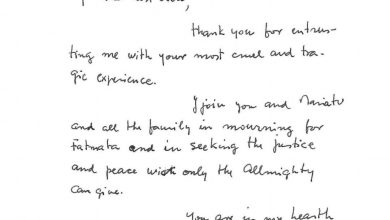 Thank you for entrus-
ting me with your most cruel and tra-
gic experience.
I join you and Mariatu
and all the family in mourning for
Fatmata and in seeking the justice
and peace wich only the Allmighty
can give.
You are in my hearth